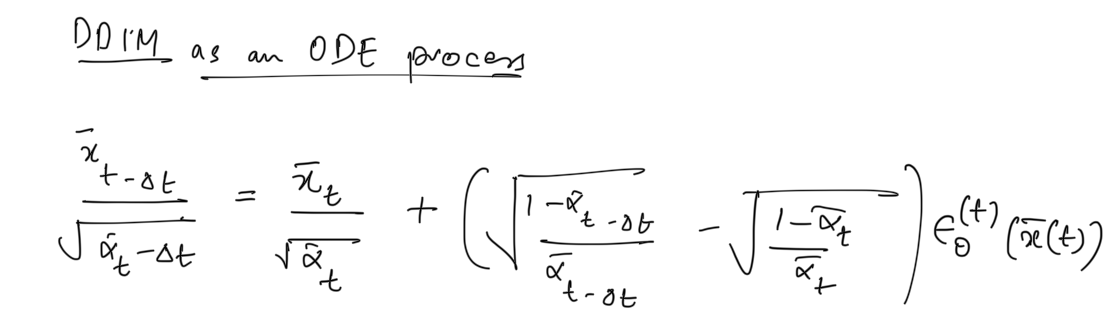 DDIM as an ODE process
\frac{\bar{x}_{t-\Delta t}}{\sqrt{\bar{\alpha}_t-\Delta t}} = \frac{\bar{x}_t}{\sqrt{\bar{\alpha}_t}} + \left( \sqrt{\frac{1-\bar{\alpha}_{t-\Delta t}}{\bar{\alpha}_{t-\Delta t}}} - \sqrt{\frac{1-\bar{\alpha}_t}{\bar{\alpha}_t}} \right) \epsilon_\theta^{(t)}(\bar{x}(t))